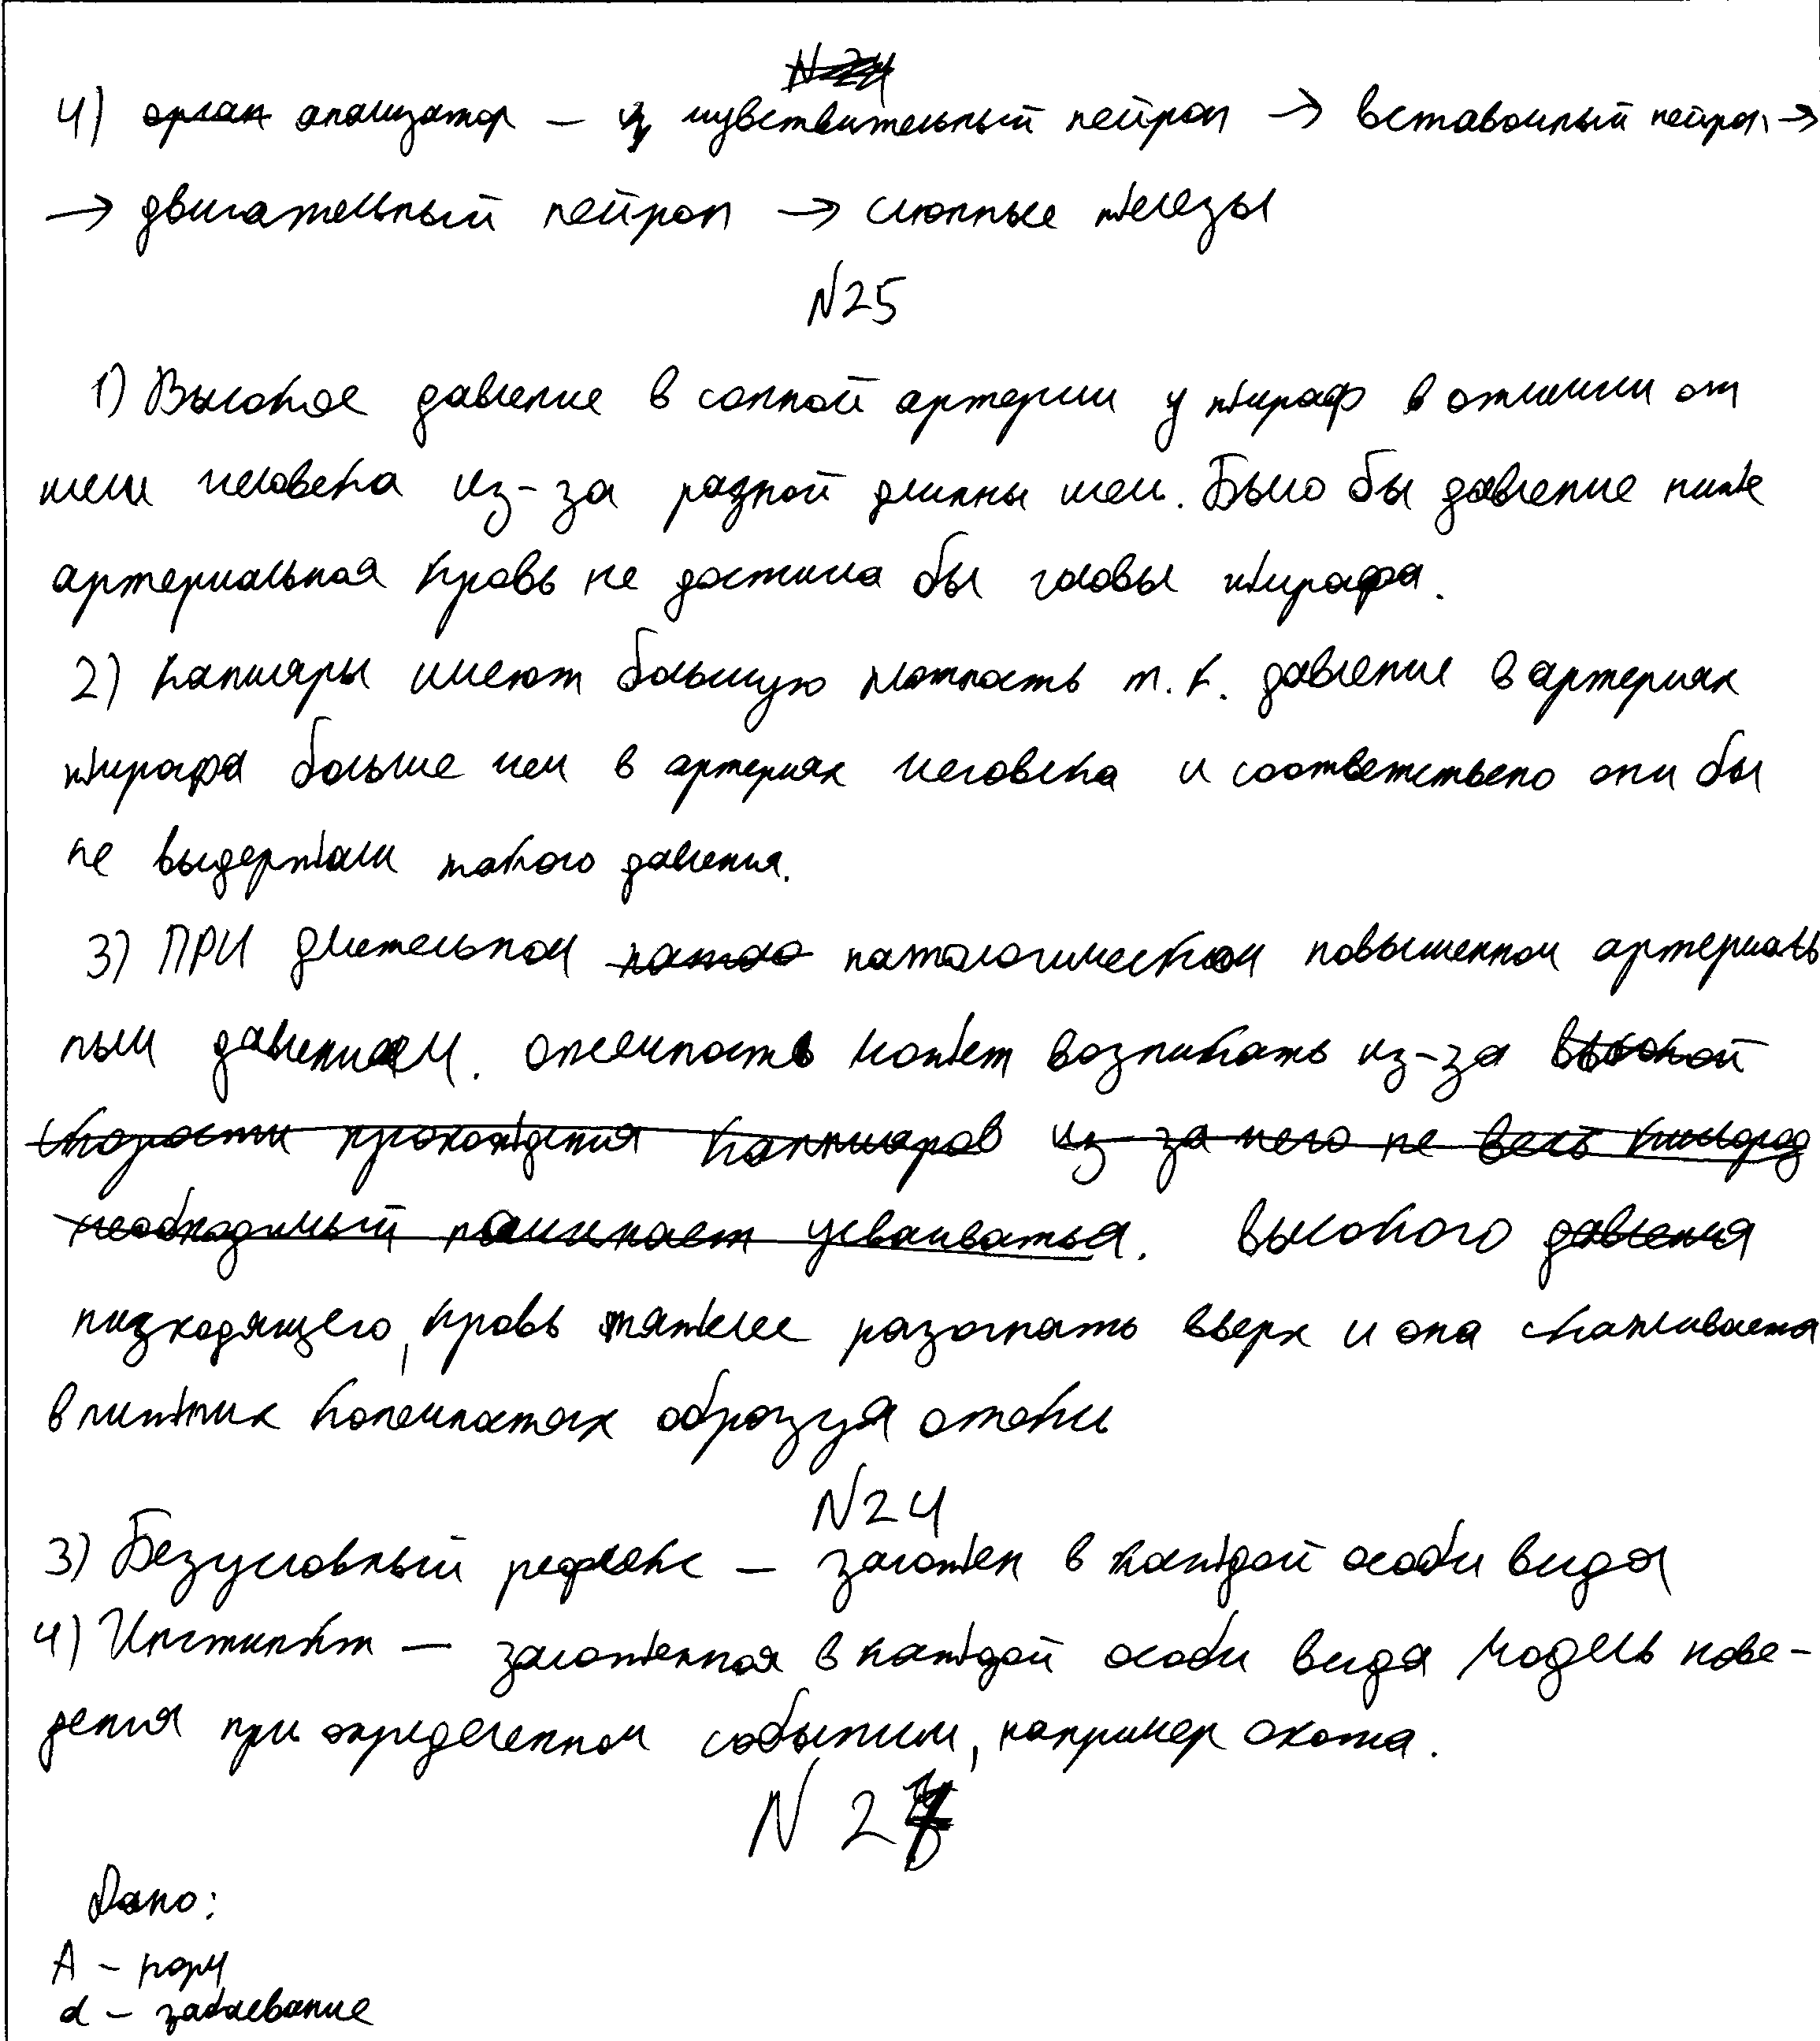 N24
4) орган анализатор – ч чувствительный нейрон → вставочный нейрон →
→ двигательный нейрон → слюнные железы
N25
1) Высокое давление в сонной артерии у жираф в отличии от
шеи человека из-за разной длинны шеи. Было бы давление ниже
артериальная кровь не достигла бы головы жирафа.
2) капиляры имеют большую плотность т.к. давление в артериях
жирафа больше чем в артериях человека и соответствено они бы
не выдержали такого давления.
3) ПРИ длительном патоло патологическом повышенном артериаль
ным давлением. отечность может возникать из-за высокой
скорости прохождения капиляров из-за чего не весь кислород
необходимый начинает усваиваться. высокого давления
низходящего, кровь тяжелее разогнать вверх и она скапливается
в нижних конечностях образуя отеки
N24
3) Безусловный рефлекс – заложен в каждой особи вида
4) Инстинкт – заложенная в каждой особи вида модель пове-
дения при определенном событии, например охота.
N 2
Дано:
A – норм
a – заболевание